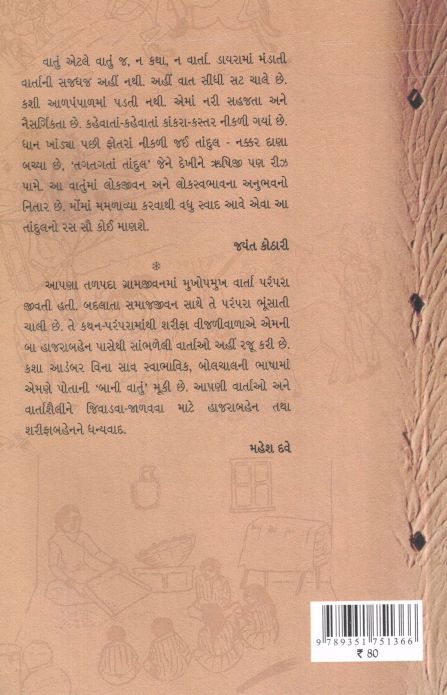 વાતું એટલે વાતું જ, ન કથા, ન વાર્તા. ડાયરામાં મંડાતી
વાર્તાની સજધજ અહીં નથી. અહીં વાત સીધી સટ ચાલે છે.
કશી આળપંપાળમાં પડતી નથી. એમાં નરી સહજતા અને
નૈસર્ગિકતા છે. કહેવાતાં-કહેવાતાં કાંકરા-કસ્તર નીકળી ગયાં છે.
ધાન ખાંડ્યા પછી ફોતરાં નીકળી જઈ તાંદુલ - નક્કર દાણા
બચ્યા છે, ‘તગતગતાં તાંદુલ’ જેને દેખીને ઋષિજી પણ રીઝ
પામે. આ વાતુંમાં લોકજીવન અને લોકસ્વભાવના અનુભવનો
નિતાર છે. મોંમાં મમળાવ્યા કરવાથી વધુ સ્વાદ આવે એવા આ
તાંદુલનો રસ સૌ કોઈ માણશે.
જયંત કોઠારી
*
આપણા તળપદા ગ્રામજીવનમાં મુખોપમુખ વાર્તા પરંપરા
જીવતી હતી. બદલાતા સમાજજીવન સાથે તે પરંપરા ભૂંસાતી
ચાલી છે. તે કથન-પરંપરામાંથી શરીફા વીજળીવાળાએ એમની
બા હાજરાબહેન પાસેથી સાંભળેલી વાર્તાઓ અહીં રજૂ કરી છે.
કશા આડંબર વિના સાવ સ્વાભાવિક, બોલચાલની ભાષામાં
એમણે પોતાની ‘બાની વાતું’ મૂકી છે. આપણી વાર્તાઓ અને
વાર્તાશૈલીને જિવાડવા-જાળવવા માટે હાજરાબહેન તથા
શરીફાબહેનને ધન્યવાદ.
મહેશ દવે
9 789351 751366
₹ 80